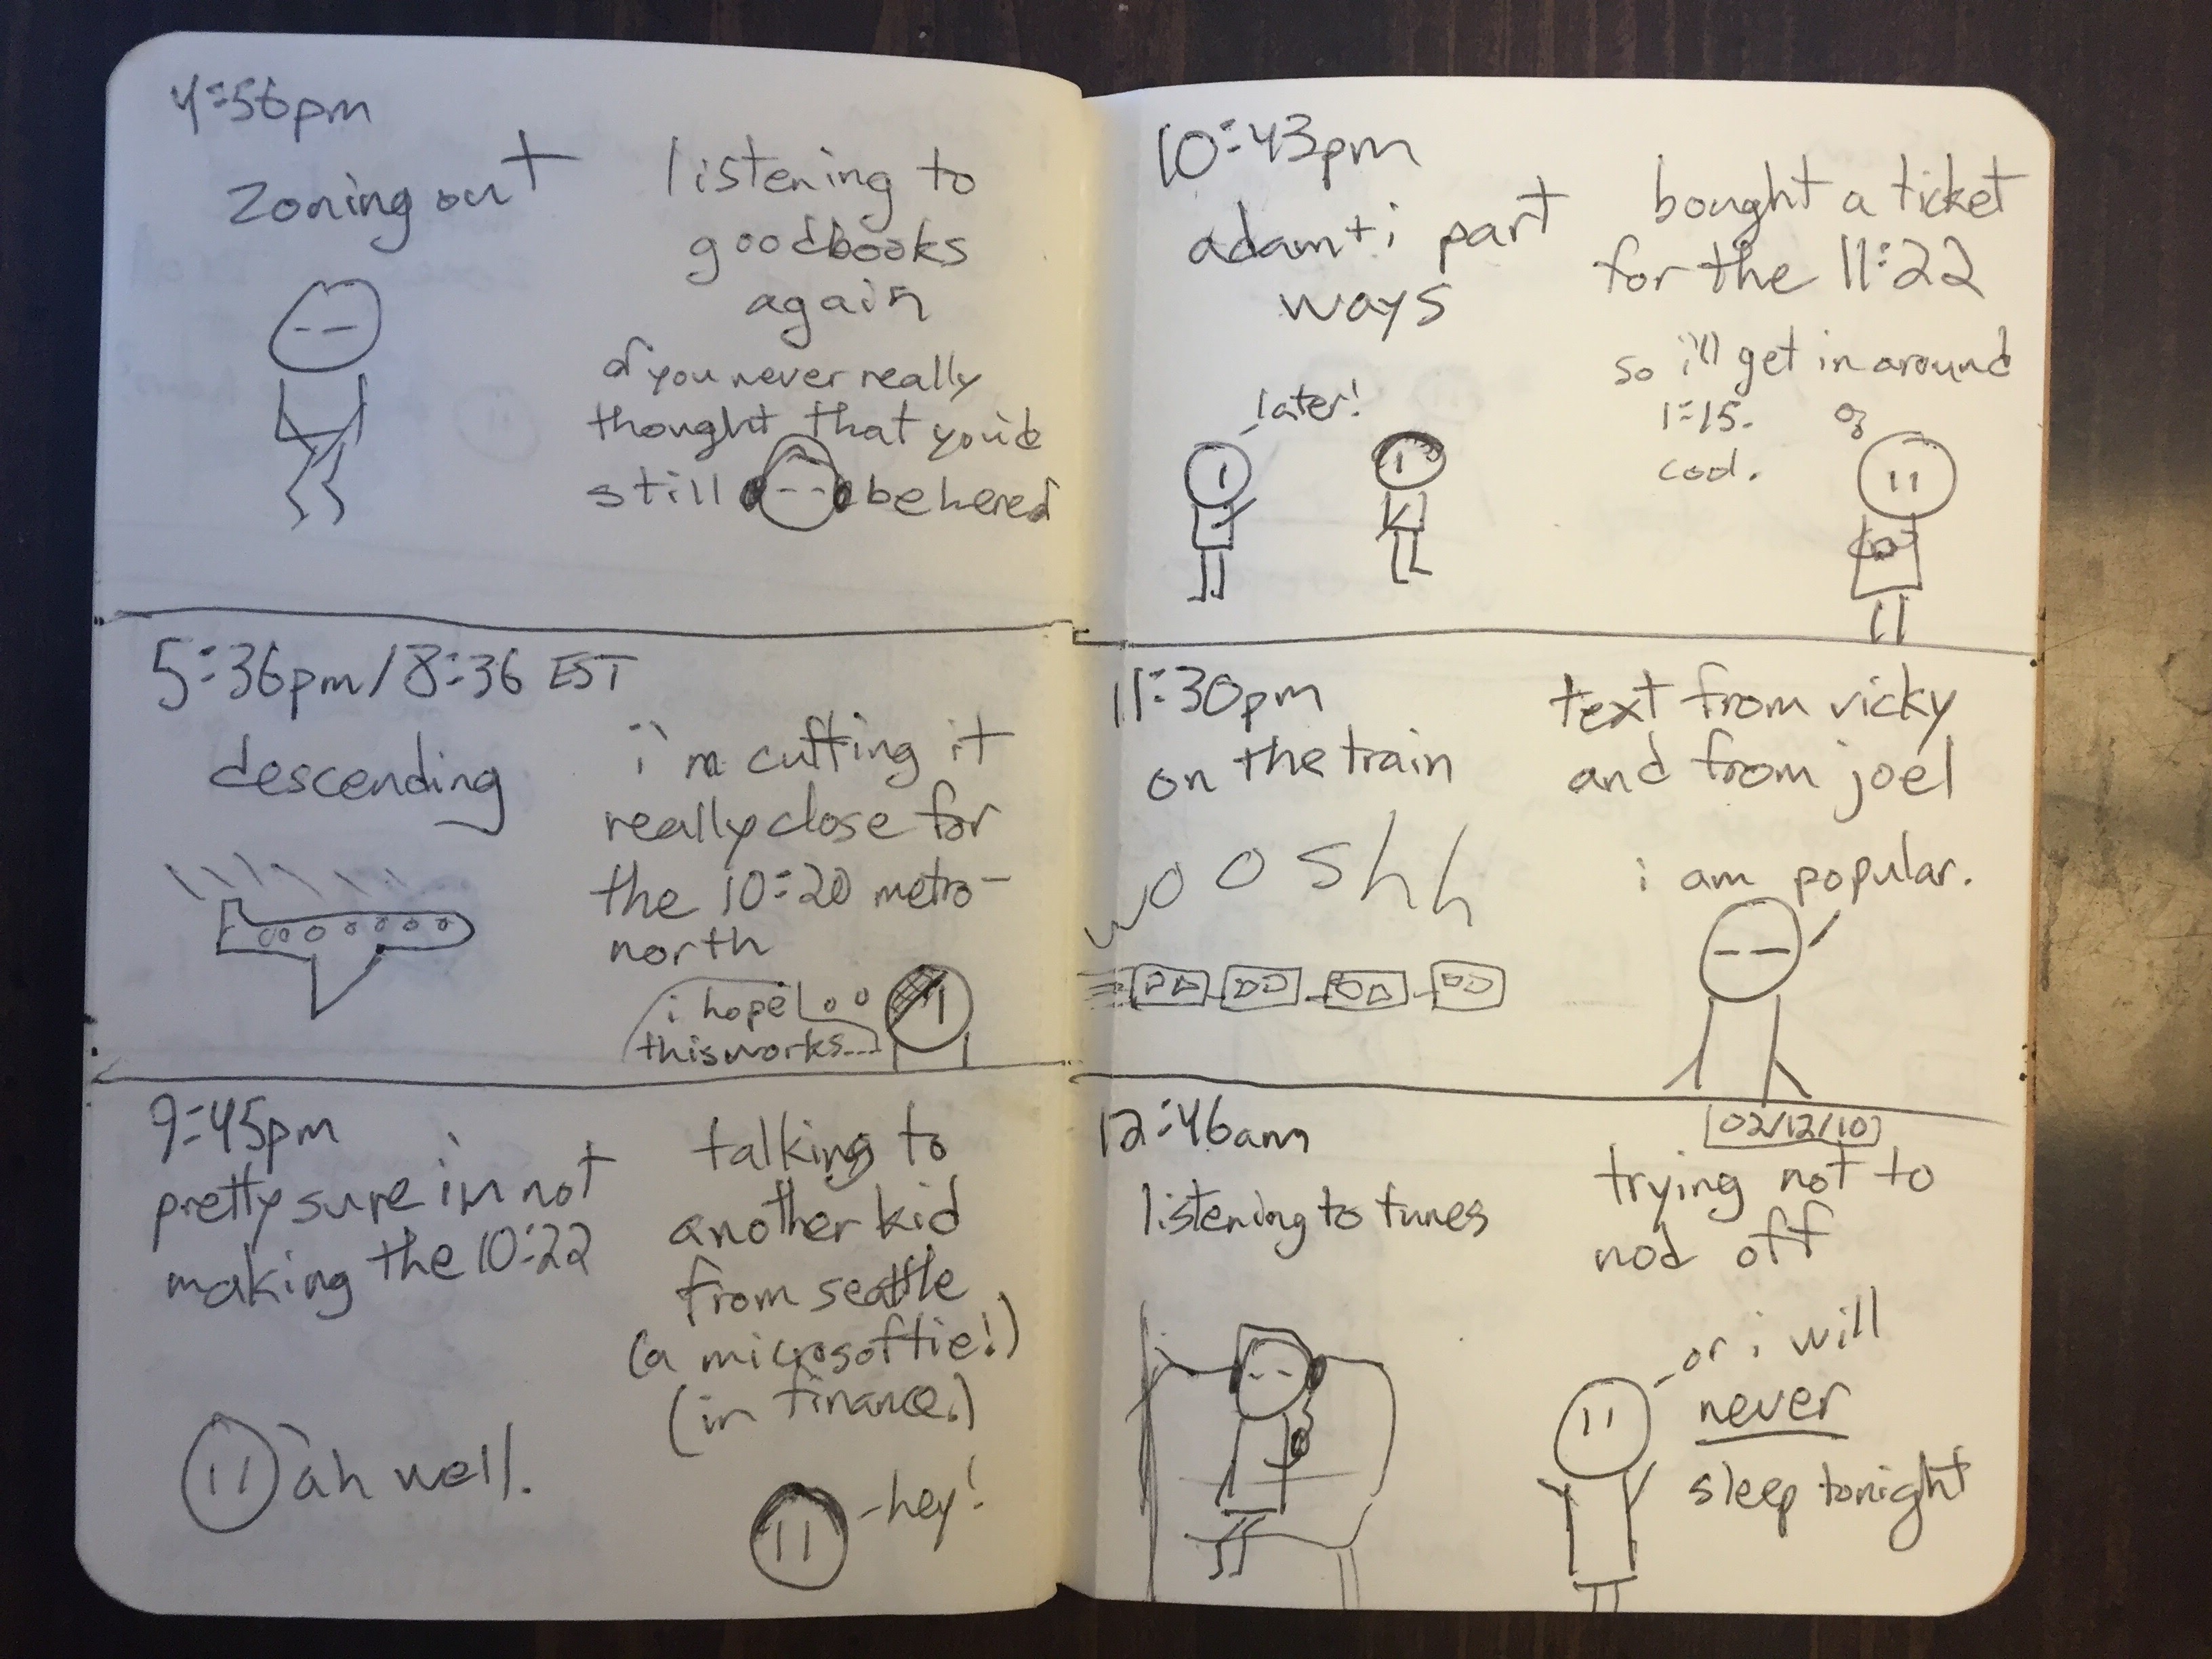 4:56pm
zoning out
listening to
goodbooks
again
♫ you never really
thought that you'd
still be here ♫
5:36pm/8:36 EST
descending
i'm cutting it
really close for
the 10:20 metro-
north
i hope
this works...
9:45pm
pretty sure i'm not
making the 10:22
ah well.
talking to
another kid
from seattle
(a microsoftie!)
(in finance.)
hey!
10:43pm
adam + i part
ways
later!
bought a ticket
for the 11:22
so i'll get in around
1:15.
cool.
11:30pm
on the train
wooshh
text from vicky
and from joel
i am popular.
12:46am
listening to tunes
02/12/10
trying not to
nod off
or i will
never
sleep tonight